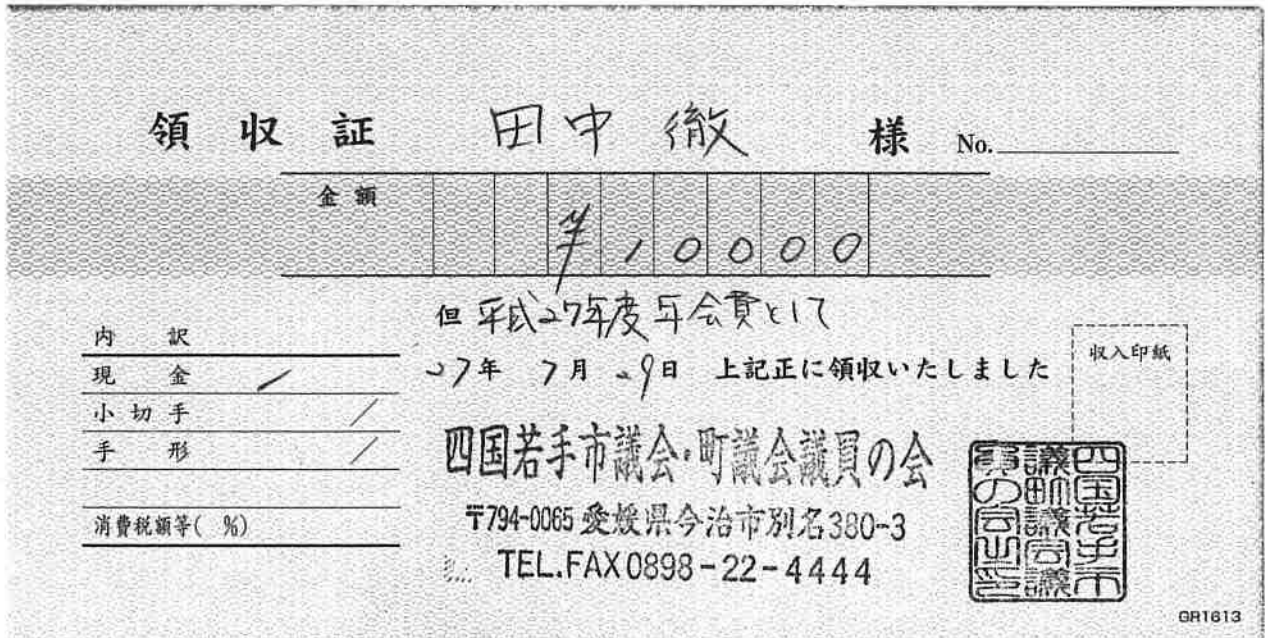 領収証 田中 徹 様 No.
金額 ¥10000
但 平成27年度年会費として
27年 7月 29日 上記正に領収いたしました
収入印紙
内訳
現金
小切手
手形
消費税額等( %)
四国若手市議会・町議会議員の会
〒794-0065 愛媛県今治市別名380-3
TEL.FAX 0898-22-4444
四国若手市
議町議会議
員の会之印
GR1613